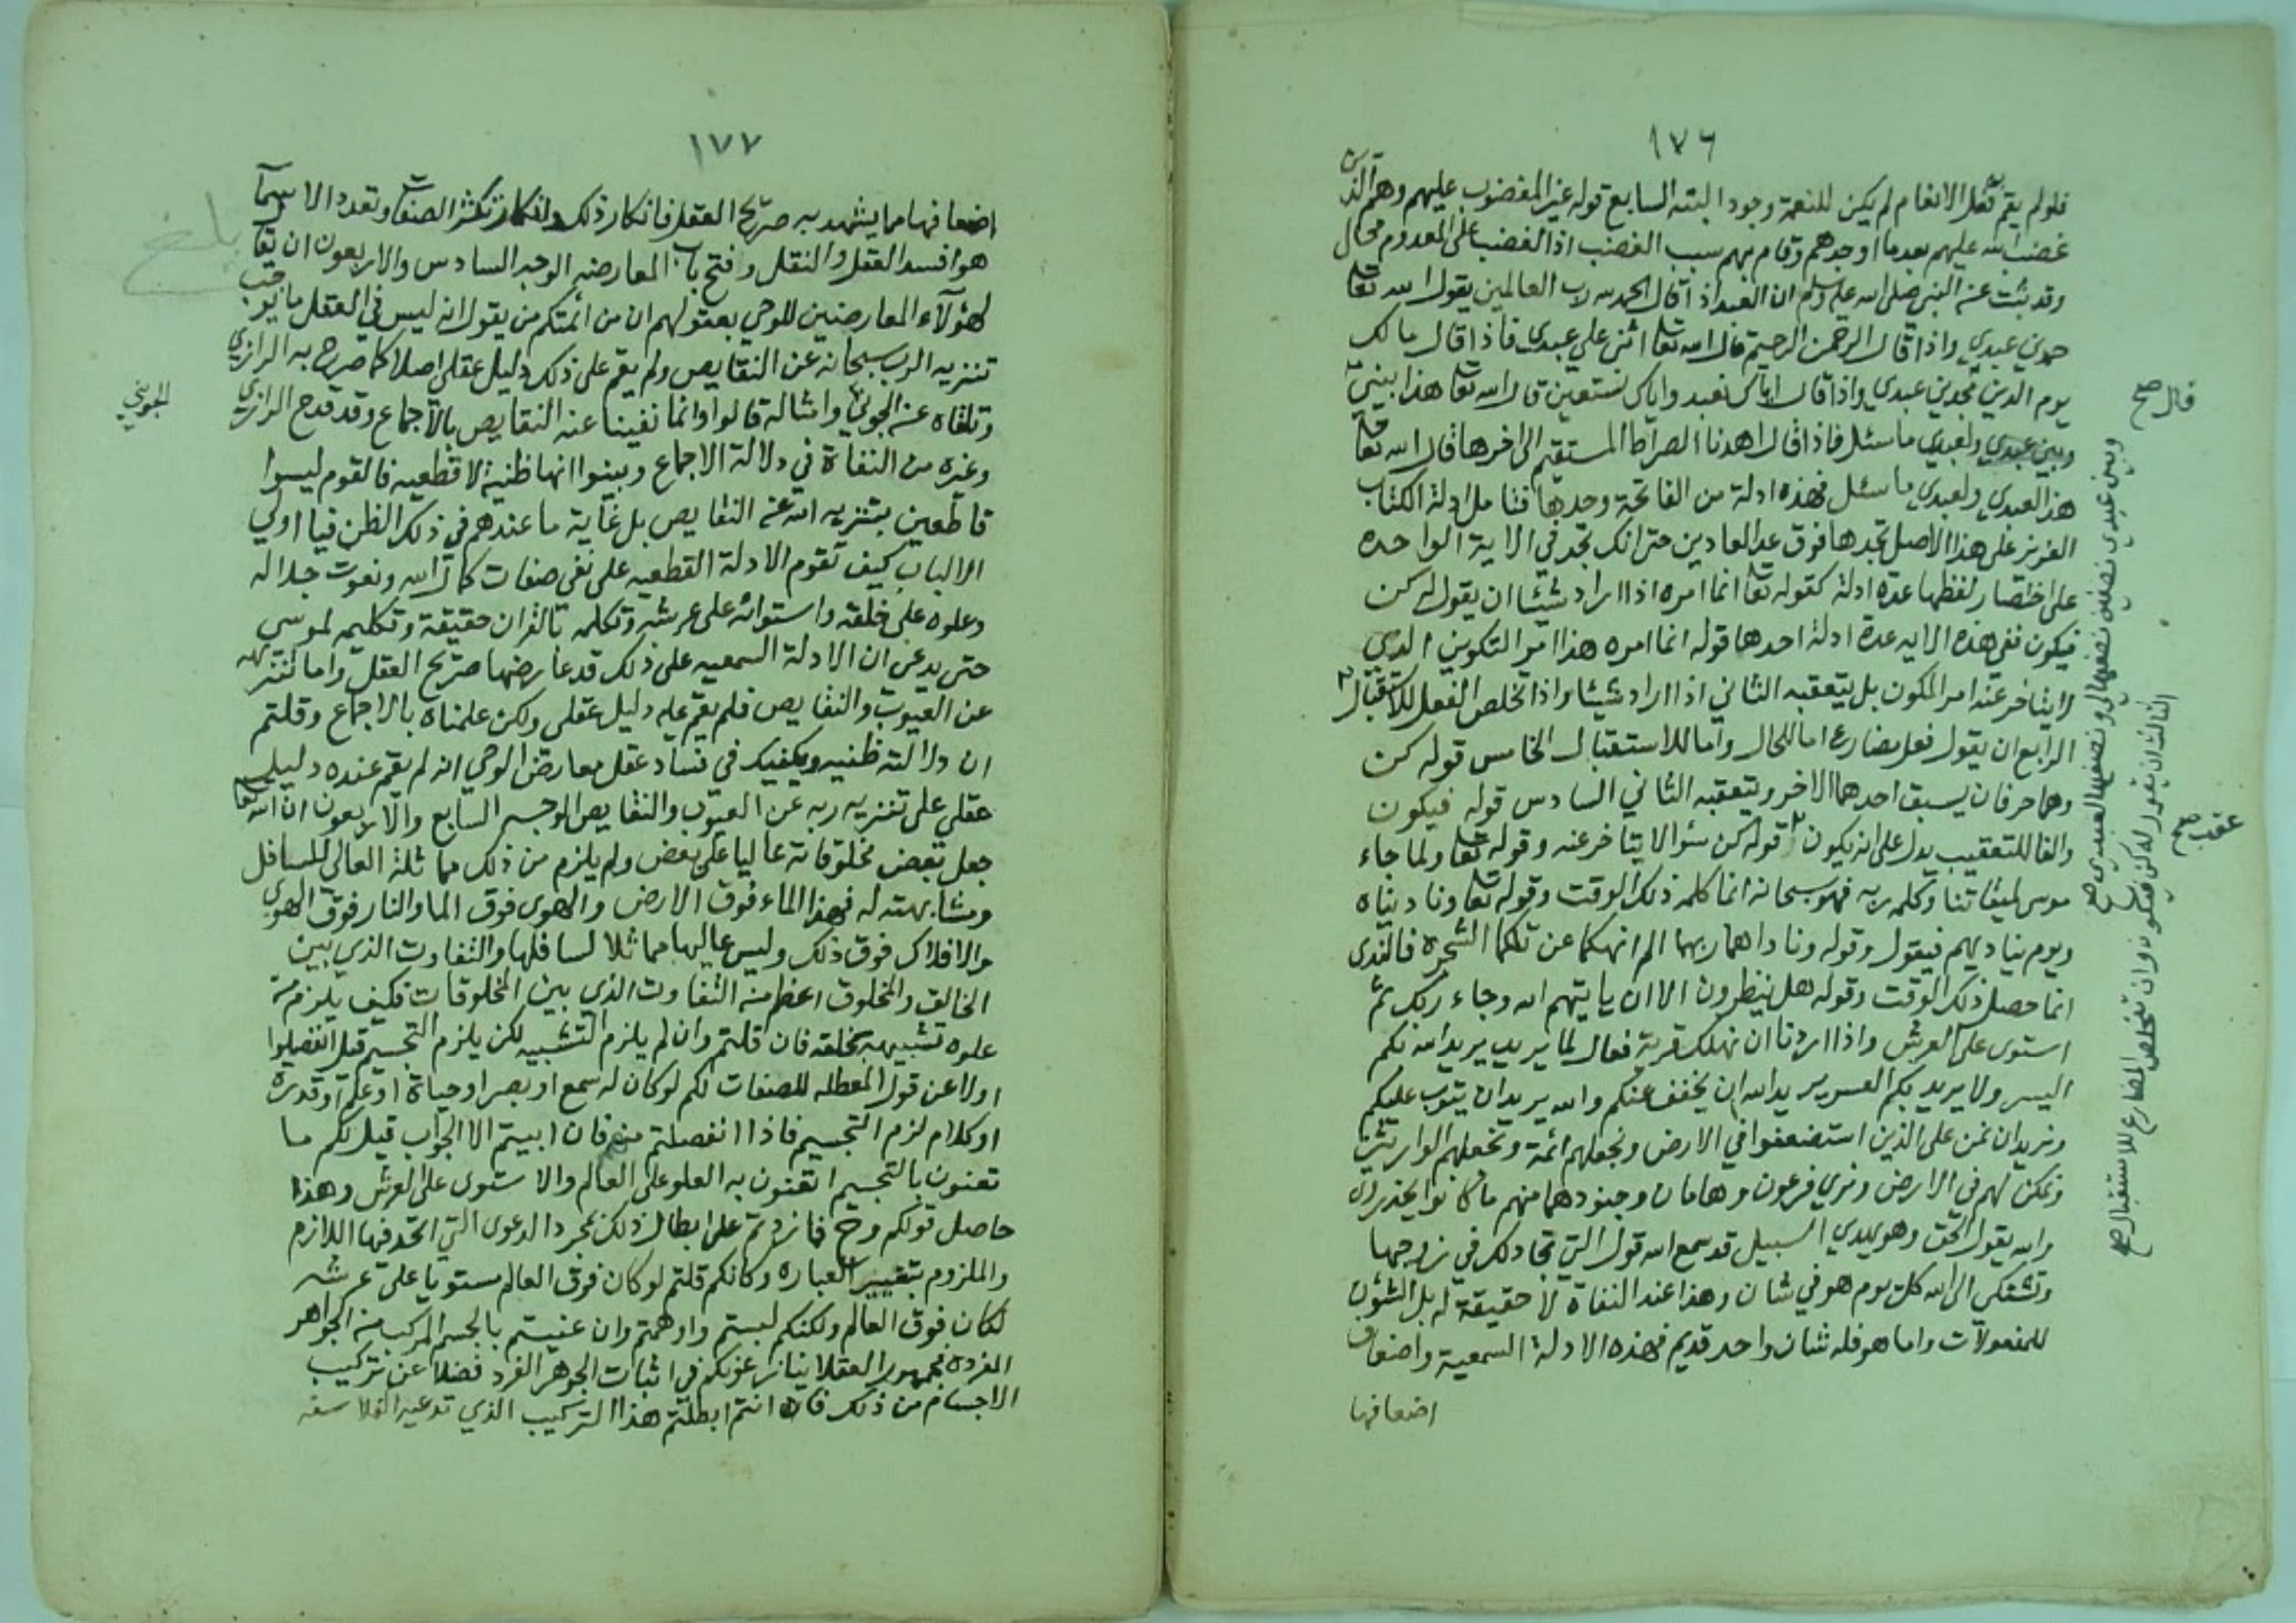 ١٧٦
فلولم يقم فعل الانعام لم يكن للنعمة وجودا البتة السابع قوله غير المغضوب عليهم وهم الذين
غضب الله عليهم بعدما اوجدهم وقام بهم سبب الغضب اذ الغضب على المعدوم محال
وقد ثبت عنه النبي صلى الله عليه وسلم ان العبد اذا قال الحمد لله رب العالمين يقول الله تعا
حمدني عبدي واذا قال الرحمن الرحيم قال الله تعا اثنى علي عبدي فاذا قال مالك
يوم الدين مجدني عبدي واذا قال اياك نعبد واياك نستعين قال الله تعا هذا بيني
وبين عبدي ولعبدي ماسئل فاذا قال اهدنا الصراط المستقيم الى اخرها قال الله تعا
هذا لعبدي ولعبدي ماسئل فهذه ادلة من الفاتحة وحدها فتامل ادلة الكتاب
العزيز على هذا الاصل تجدها فوق عد العادين حتى انك تجد في الاية الواحده
على اختصار لفظها عدة ادلة كقوله تعا انما امره اذا اراد شيئا ان يقول له كن
فيكون ففي هذه الايه عدة ادلة احدها قوله انما امره هذا امر التكوين الذي
لا يتاخر عنه امر المكون بل يتعقبه الثاني اذا اراد شيئا واذا تخلص الفعل للاستقبال
الرابع ان يقول فعل مضارع اما للحال واما للاستقبال الخامس قوله كن
وهما حرفان يسبق احدهما الاخر ويتعقبه الثاني السادس قوله فيكون
والفا للتعقيب يدل على انه يكون قوله كن سؤا لا يتاخر عنه وقوله تعا ولما جاء
موسى لميقاتنا وكلمه ربه فهو سبحانه انما كلمه ذلك الوقت وقوله تعا وناديناه
ويوم يناديهم فيقول وقوله وناداهما ربهما الم انهكما عن تلكما الشجره فالندى
انما حصل ذلك الوقت وقوله هل ينظرون الا ان ياتيهم الله وجاء ربك ثم
استوى على العرش واذا اردنا ان نهلك قرية فعال لما يريد يريد الله بكم
اليسر ولا يريد بكم العسر يريد الله ان يخفف عنكم والله يريد ان يتوب عليكم
ونريد ان نمن على الذين استضعفوا في الارض ونجعلهم ائمة ونجعلهم الوارثين
ونمكن لهم في الارض ونري فرعون وهامان وجنودهما منهم ما كانوا يحذرون
والله يقول الحق وهو يهدي السبيل قد سمع الله قول التي تجادلك في زوجها
وتشتكي الى الله كل يوم هو في شان وهذا عند النفاة لا حقيقة له بل الشؤن
للمفعولات واما هو فله شان واحد قديم فهذه الادلة السمعية واضعاف
اضعافها
قال صح
وبين عبدي نصفين نصفها لي ونصفها لعبدي صح
الثالث ان يقول له كن فيكون وان تخلص المضارع للاستقبال صح
عقب صح
١٧٧
اضعافها مما يشهد به صريح العقل فانكار ذلك وانكار تكثر الصفات وتعدد الاسما
هو افسد العقل والنقل وفتح باب المعارضه الوجه السادس والاربعون ان يقا
لهؤلاء المعارضين للوحي بعقولهم ان من ائمتكم من يقول انه ليس في العقل ما يوجب
تنزيه الرب سبحانه عن النقايص ولم يقم على ذلك دليل عقلي اصلا كما صرح به الرازي
وتلقاه عنه الجويني وامثاله قالوا وانما نفينا عنه النقايص بالاجماع وقد قدح الرازي
وغيره من النفاة في دلالة الاجماع وبينوا انها ظنية لا قطعيه فالقوم ليسوا
قاطعين بتنزيه الله عنه النقايص بل غاية ما عندهم في ذلك الظن فيا اولي
الالباب كيف تقوم الادلة القطعيه على نفي صفات كمال الله ونعوت جلاله
وعلوه على خلقه واستوائه على عرشه وتكلمه بالقران حقيقة وتكليمه لموسى
حتى يدعى ان الادلة السمعيه على ذلك قد عارضها صريح العقل واما تنزيهه
عن العيوب والنقايص فلم يقم عليه دليل عقلي ولكن علمناه بالاجماع وقلتم
ان دلالته ظنيه ويكفيك في فساد عقل معارض الوحي انه لم يقم عنده دليل
عقلي على تنزيه ربه عن العيوب والنقايص الوجه السابع والاربعون ان الله تعا
جعل بعض مخلوقاته عاليا على بعض ولم يلزم من ذلك مماثلة العالى للسافل
ومشابهته له فهذا الماء فوق الارض والهوى فوق الما والنار فوق الهوى
والافلاك فوق ذلك وليس عاليها مماثلا لسافلها والتفاوت الذي بين
الخالق والمخلوق اعظم منه التفاوت الذي بين المخلوقات فكيف يلزم من
علوه تشبيهه بخلقه فان قلتم وان لم يلزم التشبيه لكن يلزم التجسيم قيل انفصلوا
اولا عن قول المعطله للصفات لكم لو كان له سمع او بصر او حياة او علم او قدرة
او كلام لزم التجسيم فاذا انفصلتم منهم فان ابيتم الا الجواب قيل لكم ما
تعنون بالتجسيم اتعنون به العلو على العالم والاستوى على العرش وهذا
حاصل قولكم وح فما زدتم على ابطال ذلك بمجرد الدعوى التي اتحد فيها اللازم
والملزوم بتغيير العباره وكانكم قلتم لو كان فوق العالم مستويا على عرشه
لكان فوق العالم ولكنكم لبستم واوهمتم وان عنيتم بالجسم المركب منه الجواهر
المفرده فجمهور العقلا ينازعونكم في اثبات الجوهر الفرد فضلا عن تركيب
الاجسام من ذلك فان انتم ابطلتم هذا التركيب الذي تدعيه الفلاسفه
بلغ
الجويني